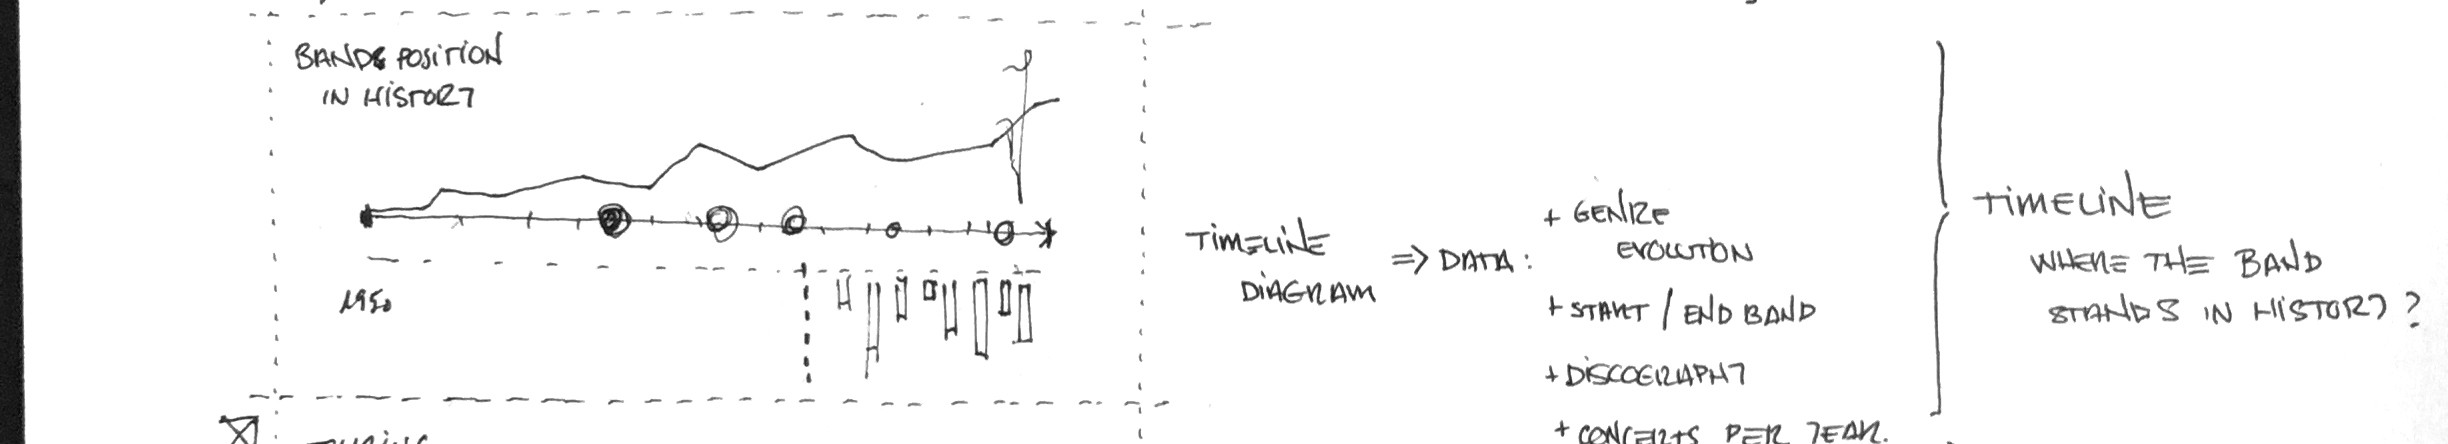 BANDS POSITION
IN HISTORY
1950
TIMELINE
DIAGRAM
=> DATA:
+ GENRE
EVOLUTION
+ START / END BAND
+ DISCOGRAPHY
+ CONCERTS PER YEAR.
TIMELINE
WHERE THE BAND
STANDS IN HISTORY?